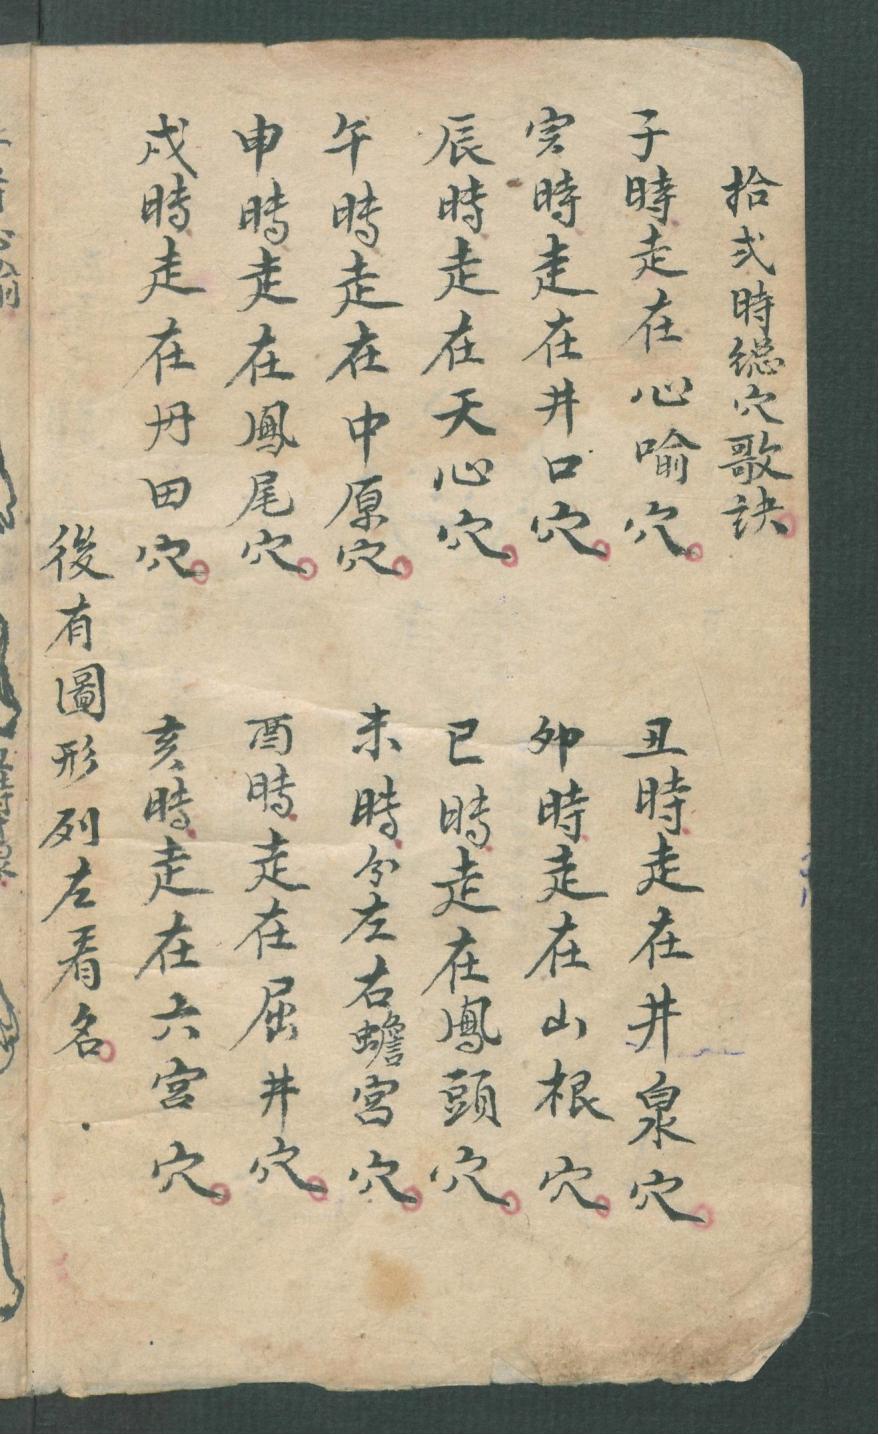 拾弍時總穴歌訣
子時走在心喻穴。
丑時走在井泉穴。
寅時走在井口穴。
卯時走在山根穴。
辰時走在天心穴。
巳時走在鳳頭穴。
午時走在中原穴。
未時分左右蟾宮穴。
申時走在鳳尾穴。
酉時走在屈井穴。
戌時走在丹田穴。
亥時走在六宮穴。
後有圖形列左看名。